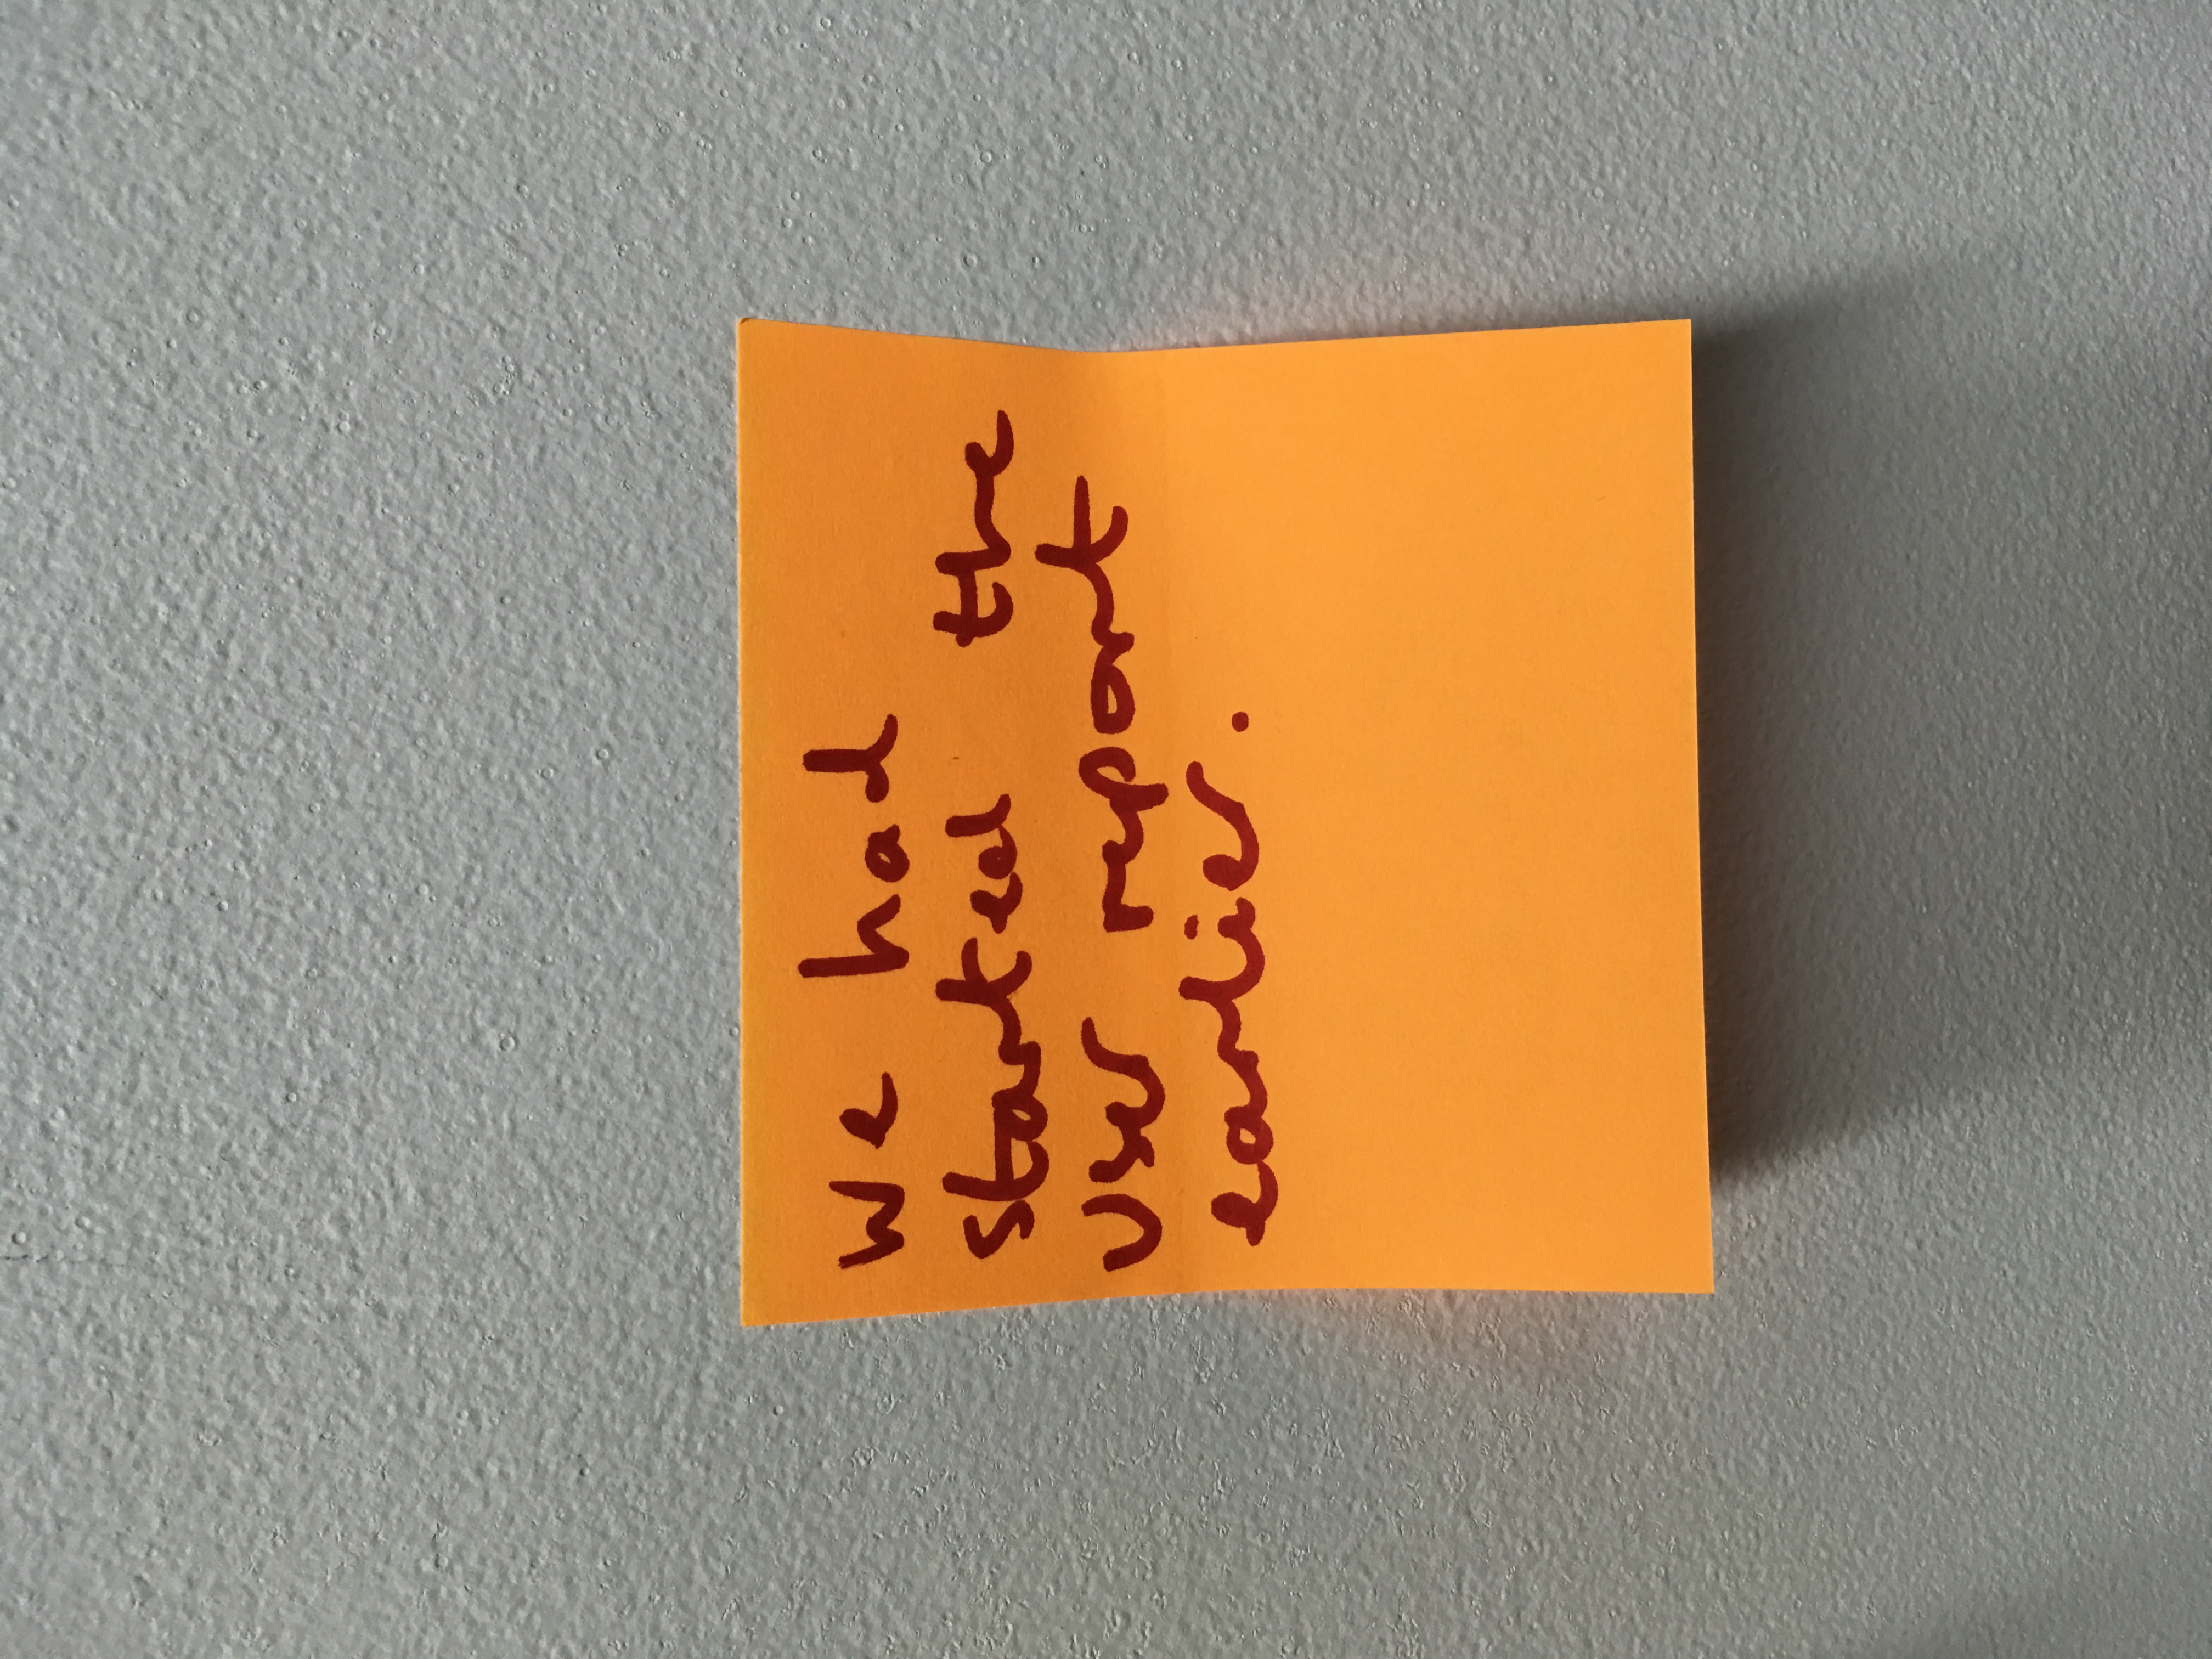 we had
started the
user report
earlier.